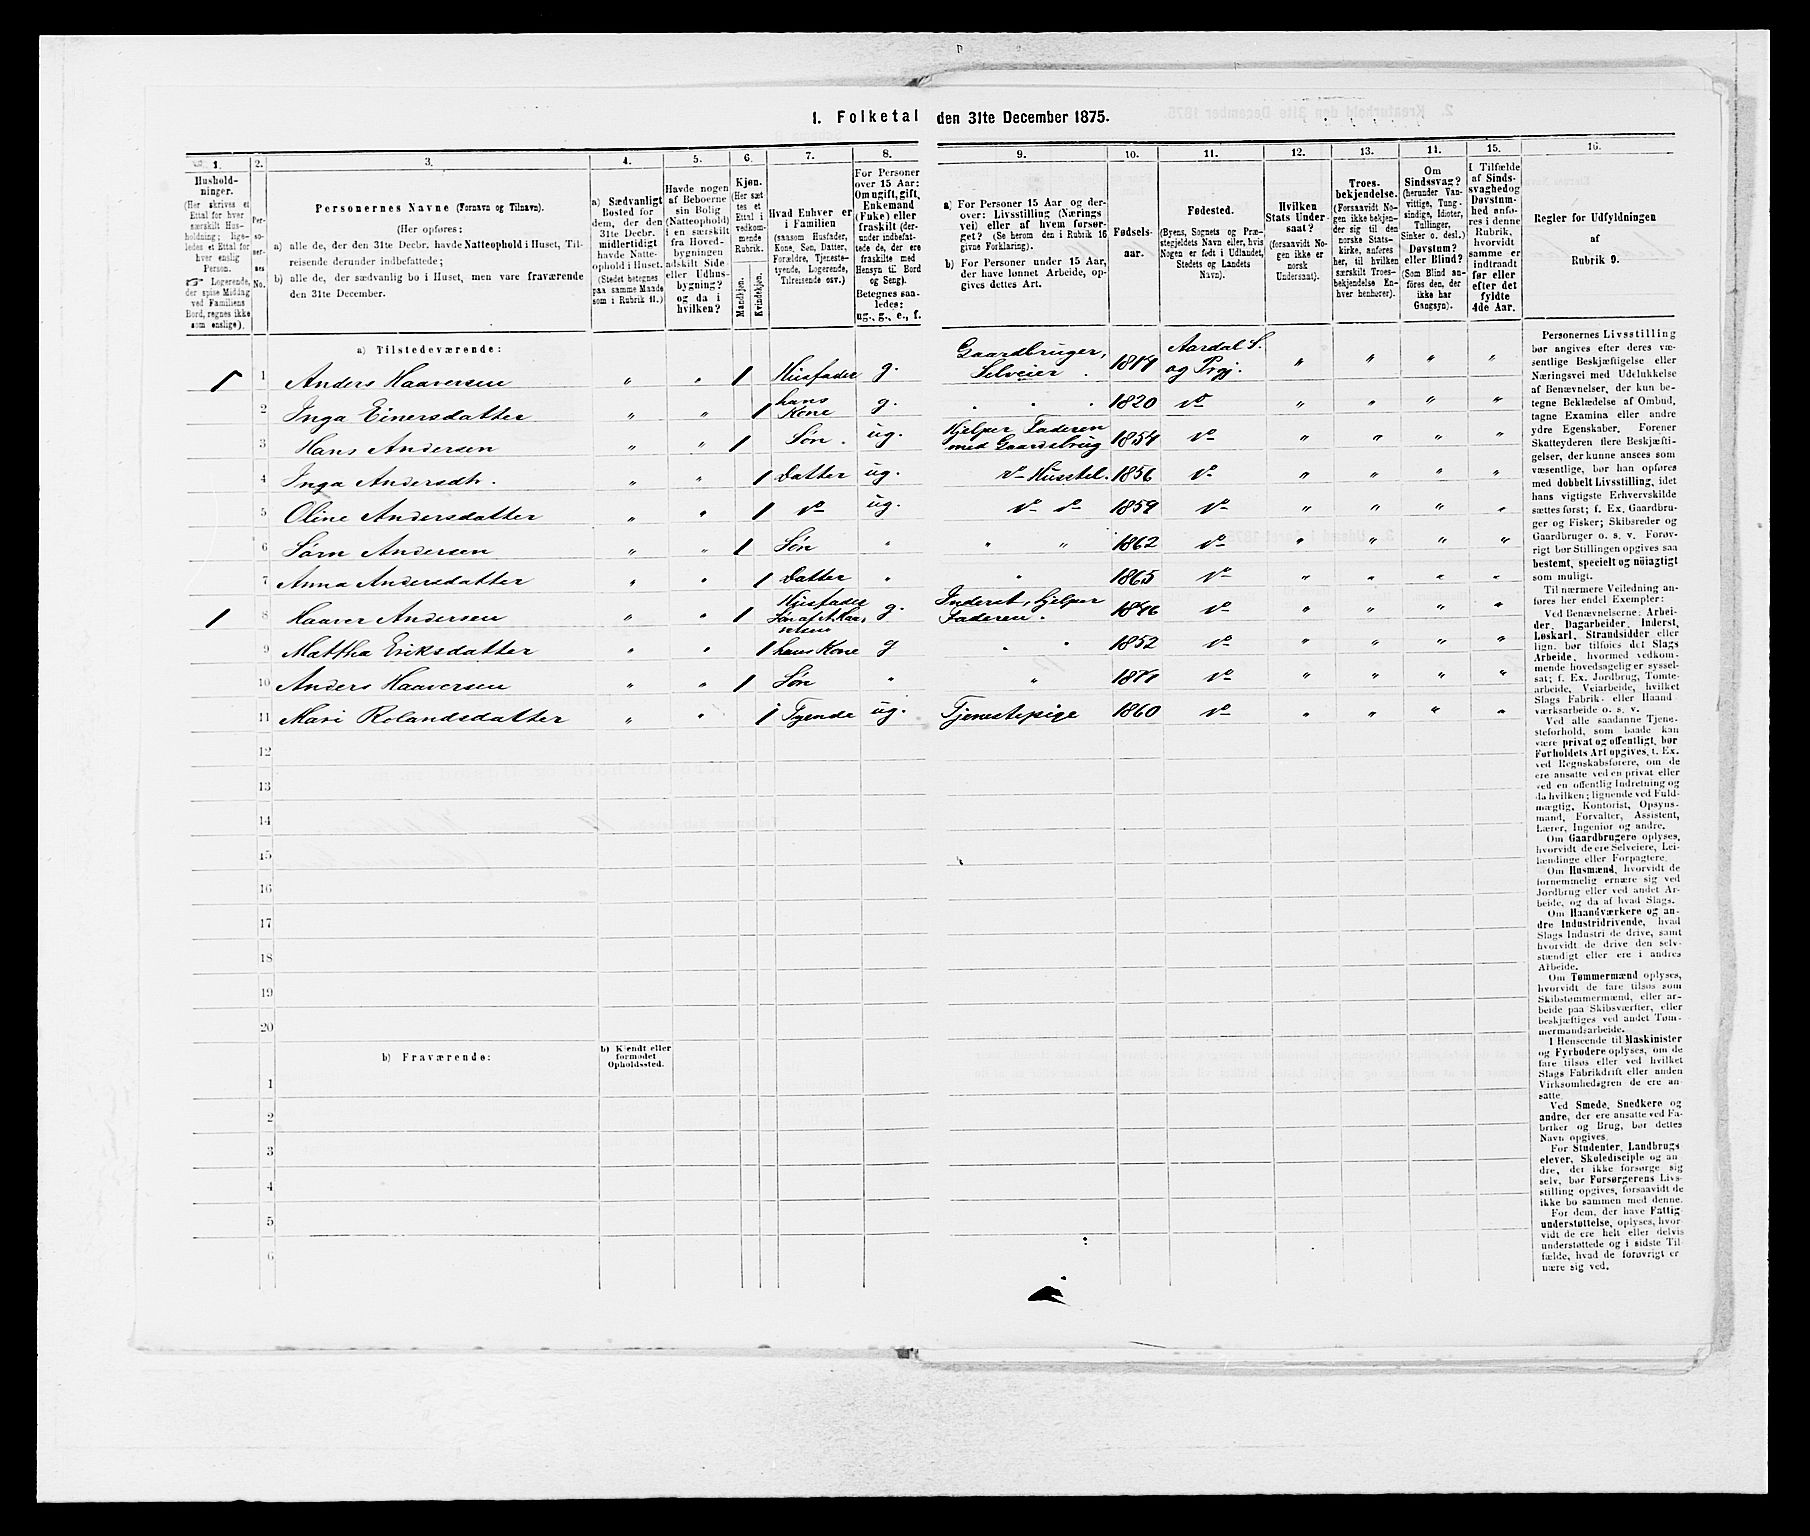 1. Folketal den 31te December 1875.
1.
2.
3.
4.
5.
6.
7.
8.
9.
10.
11.
12.
13.
14.
15.
16.
Hushold-
ninger.
(Her skrives et
Ettal for hver
særskilt Hus-
holdning; lige-
ledes et Ettal for
hver enslig
Person.
☞ Logerende,
der spise Middag
ved Familiens
Bord, regnes ikke
som enslige).
Per-
so-
ner-
nes
No.
Personernes Navne (Fornavn og Tilnavn).
(Her opføres:
a) alle de, der den 31te Decbr. havde Natteophold i Huset, Til-
reisende derunder indbefattede;
b) alle de, der sædvanlig bo i Huset, men vare fraværende
den 31te December.
a) Sædvanligt
Bosted for
dem, der den
31te Decbr.
midlertidigt
havde Natte-
ophold i Huset.
(Stedet betegnes
paa samme Maade
som i Rubrik 11.)
Havde nogen
af Beboerne
sin Bolig
(Natteophold)
i en særskilt
fra Hoved-
bygningen
adskilt Side
eller Udhus-
bygning?
og da i
hvilken?
Kjøn.
(Her sæt
tes et
Ettal i
vedkom-
mende
Rubrik.
Mandkjøn.
Kvindekjøn.
Hvad Enhver er
i Familien
(saasom Husfader,
Kone, Søn, Datter,
Forældre, Tjeneste-
tyende, Logerende,
Tilreisende osv.)
For Personer
over 15 Aar:
Om ugift, gift,
Enkemand
(Enke) eller
fraskilt (der-
under indbefat-
tede de, der ere
fraskilte med
Hensyn til Bord
og Seng).
Betegnes saa-
ledes:
ug., g., e., f.
a) For Personer 15 Aar og der-
over: Livsstilling (Nærings
vei) eller af hvem forsør-
get? (Se herom den i Rubrik 16
givne Forklaring).
b) For Personer under 15 Aar,
der have lønnet Arbeide, op-
gives dettes Art.
Fødsels-
aar.
Fødested.
(Byens, Sognets og Præ-
stegjeldets Navn eller, hvis
Nogen er født i Udlandet,
Stedets og Landets
Navn).
Hvilken
Stats Under-
saat?
(forsaavidt No-
gen ikke er
norsk
Undersaat).
Troes-
bekjendelse.
(Forsaavidt No-
gen ikke bekjen-
der sig til den
norske Stats-
kirke, anføres
her, til hvilken
særskilt Troes-
bekjendelse En-
hver henhører).
Om
Sindssvag?
(herunder Van-
vittige, Tung-
sindige, Idioter,
Tullinger,
Sinker o. desl.)
Døvstum?
eller Blind?
(Som Blind an-
føres den, der
ikke har
Gangsyn).
I Tilfælde
af Sinds-
svaghedog
Døvstum-
hed anfø-
res i denne
Rubrik,
hvorvidt
samme er
indtraadt
før eller
efter det
fyldte
4de Aar.
Regler for Udfyldningen
af
Rubrik 9.
a) Tilstedeværende:
1 1 Anders Haaversen " " 1 Husfader g. Gaardbruger, Selveier. Aardal S. og Prgj. " " " "
2 Inga Einersdatter " " 1 hans Kone g. " " " 1820 do " " " "
3 Hans Andersen " " 1 Søn. ug. Hjelper Faderen med Gaardsbrug 1854 do " " " "
4 Inga Andersdtr. " " 1 Datter ug. do Husstel. 1856 do " " " "
5 Oline Andersdatter " " 1 do ug. do do 1859 do " " " "
6 Sørn Andersen " " 1 Søn " " " 1862 do " " " "
7 Anna Andersdatter " " 1 Datter " " 1865 do " " " "
1 8 Haaver Andersen " " 1 Husfader Søn af A. Haaversen g. Inderst, hjelper Faderen. 1846 do " " " "
9 Mattha Eriksdatter " " 1 hans Kone g " " 1852 do " " " "
10 Anders Haaversen " " 1 Søn " " do " " " "
11 Mari Rolandsdatter " " 1 Tyende ug. Tjenestepige 1860 do " " " "
12
13
14
15
16
17
18
19
20
b) Fraværende:
b) Kjendt eller
formodet
Opholdssted.
1
2
3
4
5
6
Personernes Livsstilling
bør angives efter deres væ-
sentlige Beskjæftigelse eller
Næringsvei med Udelukkelse
af Benævnelser, der kun be-
tegne Beklædelse af Ombud,
tagne Examina eller andre
ydre Egenskaber. Forener
Skatteyderen flere Beskjæfti-
gelser, der kunne ansees som
væsentlige, bør han opføres
med dobbelt Livsstilling, idet
hans vigtigste Erhvervskilde
sættes først; f. Ex. Gaardbru-
ger og Fisker; Skibsreder og
Gaardbruger o. s. v. Forøv-
rigt bør Stillingen opgives saa
bestemt, specielt og nøiagtigt
som muligt.
Til nærmere Veiledning an-
føres her endel Exempler:
Ved Benævnelserne: Arbei-
der, Dagarbeider, Inderst,
Løskarl, Strandsidder eller
lign. bør tilføies det Slags
Arbeide, hvormed vedkom-
mende hovedsagelig er syssel-
sat; f. Ex. Jordbrug, Tomte-
arbeide, Veiarbeide, hvilket
Slags Fabrik- eller Haand
værksarbeide o. s. v.
Ved alle saadanne Tjene-
steforhold, som baade kan
være privat og offentligt, bør
Forholdets Art opgives, t. Ex.
ved Regnskabsførere, om de
ere ansatte ved en privat eller
ved en offentlig Indretning og
da hvilken; lignende ved Fuld-
mægtig, Kontorist, Opsyns-
mand, Forvalter, Assistent,
Lærer, Ingeniør og andre.
Om Gaardbrugere oplyses,
hvorvidt de ere Selveiere, Lei-
lændinge eller Forpagtere.
Om Husmænd, hvorvidt de
fornemmelig ernære sig ved
Jordbrug eller ved andet Ar-
beide, og da af hvad Slags.
Om Haandværkere og an-
dre Industridrivende, hvad
Slags Industri de drive, samt
hvorvidt de drive den selv-
stændigt eller ere i andres
Arbeide.
Om Tømmermænd oplyses,
hvorvidt de fare tilsøs som
Skibstømmermænd, eller ar-
beide paa Skibsværfter, eller
beskjæftiges ved andet Tøm-
mermandsarbeide.
I Henseende til Maskinister
og Fyrbødere oplyses, om de
fare tilsøs eller ved hvilket
Slags Fabrikdrift eller anden
Virksomhedsgren de ere an-
satte.
Ved Smede, Snedkere og
andre, der ere ansatte ved Fa-
briker og Brug, bør dettes
Navn opgives.
For Studenter, Landbrugs
elever, Skoledisciple og an-
dre, der ikke forsørge sig
selv, bør Forsørgerens Livs-
stilling opgives, forsaavidt de
ikke bo sammen med denne.
For dem, der have Fattig-
understøttelse, oplyses, hvor-
vidt de ere helt eller delvis
understøttede og i sidste Til-
fælde, hvad de forøvrigt er
nære sig ved.